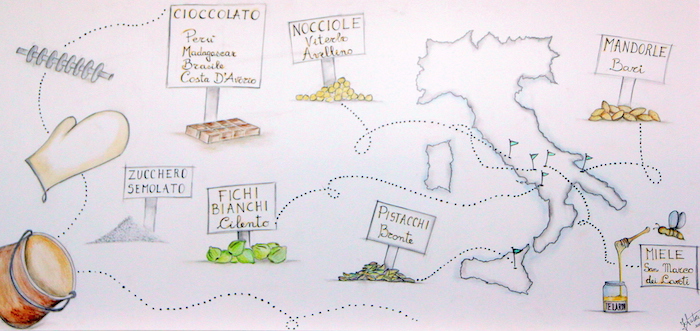 CIOCCOLATO
Perù
Madagascar
Brasile
Costa D'Avorio
NOCCIOLE
Viterbo
Avellino
MANDORLE
Bari
ZUCCHERO
SEMOLATO
FICHI
BIANCHI
Cilento
PISTACCHI
Bronte
MIELE
San Marco
dei Cavoti